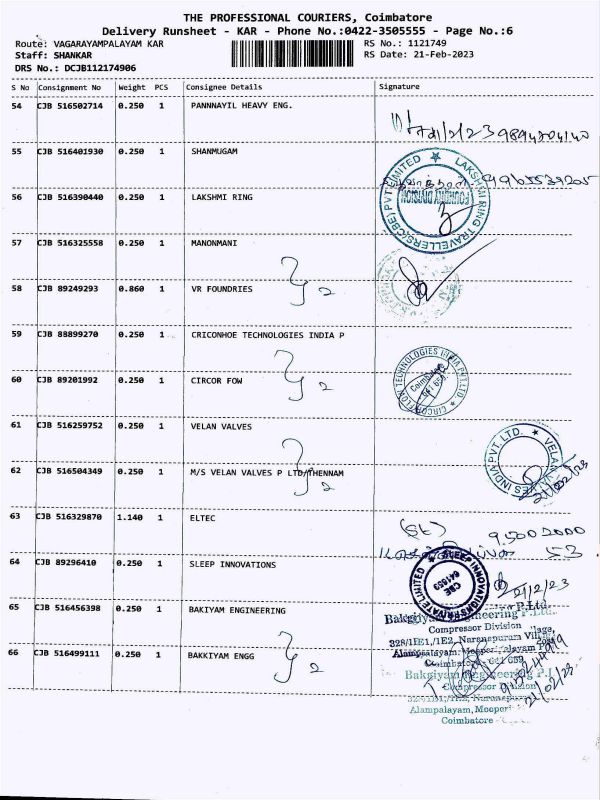 THE PROFESSIONAL COURIERS, Coimbatore
Delivery Runsheet - KAR - Phone No.:0422-3505555 - Page No.:6
Route: VAGARAYAMPALAYAM KAR
RS No.: 1121749
Staff: SHANKAR
RS Date: 21-Feb-2023
DRS No.: DCJB112174906
S No Consignment No Weight PCS Consignee Details Signature
54 CJB 516502714 0.250 1 PANNNAYIL HEAVY ENG.
21/2/23 9894204140
55 CJB 516401930 0.250 1 SHANMUGAM
9965539205
56 CJB 516390440 0.250 1 LAKSHMI RING
LAKSHMI RING TRAVELLERS(CBE) PVT LIMITED
FOUNDRY DIVISION
57 CJB 516325558 0.250 1 MANONMANI
58 CJB 89249293 0.860 1 VR FOUNDRIES
2
59 CJB 88899270 0.250 1 CRICONHOE TECHNOLOGIES INDIA P
60 CJB 89201992 0.250 1 CIRCOR FOW
2
CIRCOR FLOW TECHNOLOGIES INDIA PVT.LTD
Coimbatore
641 659
61 CJB 516259752 0.250 1 VELAN VALVES
62 CJB 516504349 0.250 1 M/S VELAN VALVES P LTD/THENNAM
2
VELAN VALVES INDIA PVT. LTD.
21/02/23
63 CJB 516329870 1.140 1 ELTEC
95002000
53
64 CJB 89296410 0.250 1 SLEEP INNOVATIONS
SLEEP INNOVATIONS PRIVATE LIMITED
CBE
641659
21/2/23
65 CJB 516456398 0.250 1 BAKIYAM ENGINEERING
Bakgiyam Engineering P.Ltd.
Compressor Division
328/1E1,/1E2, Naranapuram Village,
Coimbatore - 641 659
66 CJB 516499111 0.250 1 BAKKIYAM ENGG
2
Bakgiyam Engineering P.
Compressor Division
Alampalayam, Mooper
Coimbatore -
21/02/23